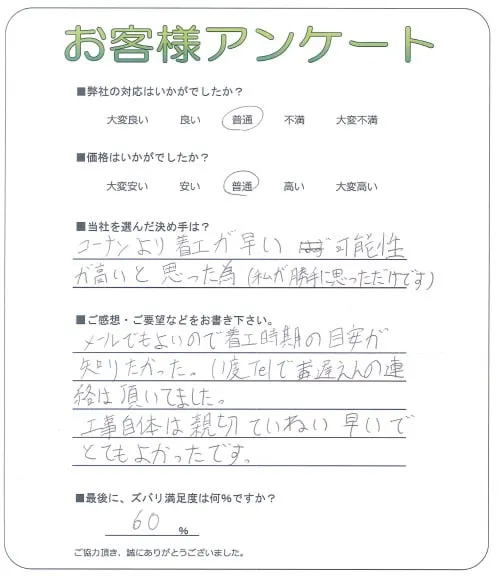 お客様アンケート
■弊社の対応はいかがでしたか？
大変良い 良い 普通 不満 大変不満
■価格はいかがでしたか？
大変安い 安い 普通 高い 大変高い
■当社を選んだ決め手は？
コーナンより着工が早い 可能性
が高いと思った為（私が勝手に思っただけです）
■ご感想・ご要望などをお書き下さい。
メールでもよいので着工時期の目安が
知りたかった。（1度Telで 遅えんの連
絡は頂いてました。
工事自体は親切ていねい早いで
とてもよかったです。
■最後に、ズバリ満足度は何％ですか？
60 ％
ご協力頂き、誠にありがとうございました。